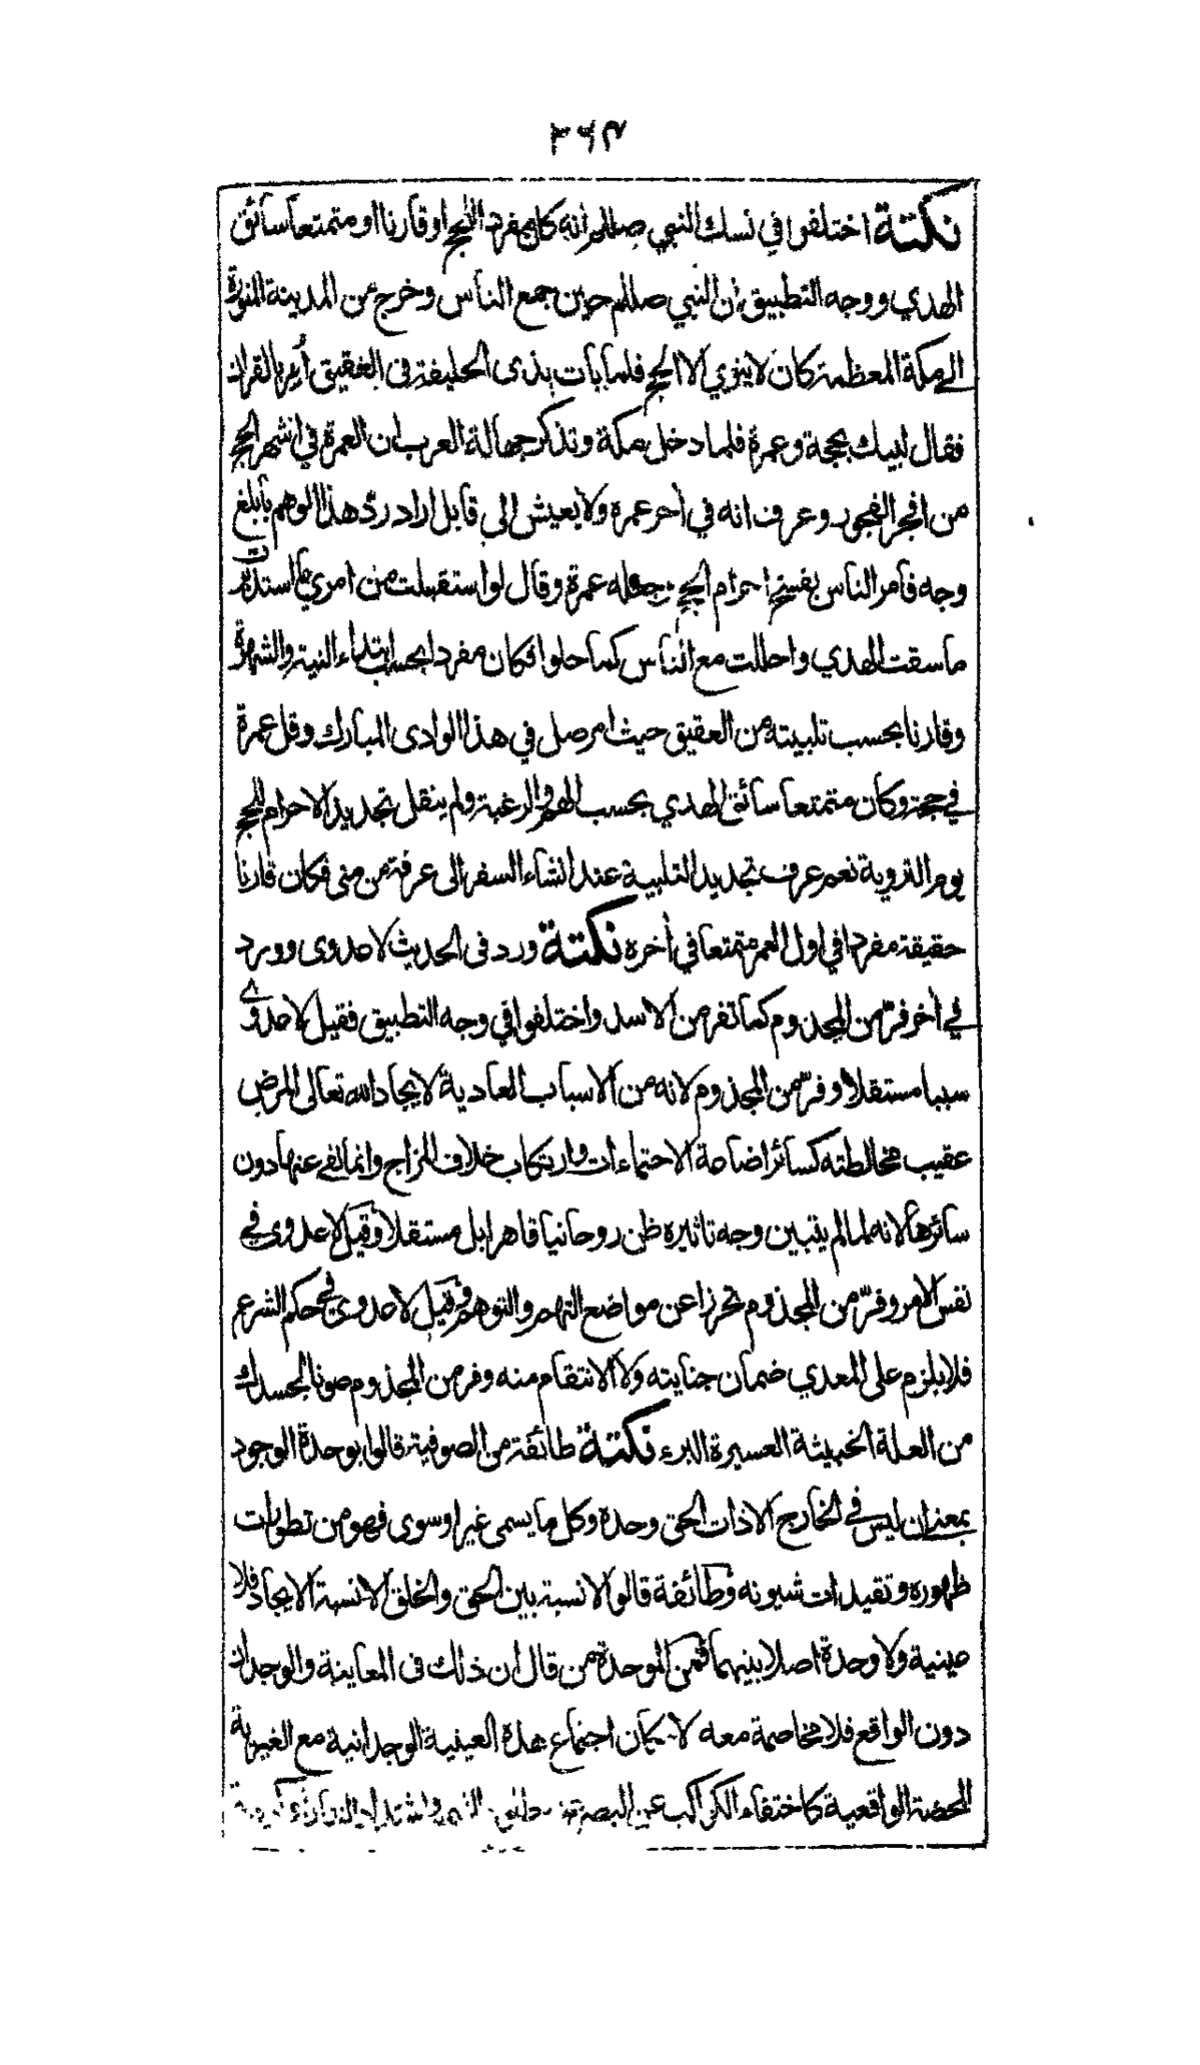 ٣٦٣
نكتة اختلفوا في نسك النبي صللم انه كان مفردا بالحج او قارنا او متمتعا سائق
الهدي ووجه التطبيق ان النبي صللم حين جمع الناس وخرج من المدينة المنورة
الى مكة المعظمة كان لا ينوي الا الحج فلما بات بذى الحليفة في العقيق أمر بالقران
فقال لبيك بحجة وعمرة فلما دخل مكة وتذكر جهالة العرب ان العمرة في اشهر الحج
من افجر الفجور وعرف انه في أخر عمره ولا يعيش الى قابل اراد ردّ هذا الوهم بابلغ
وجه فامر الناس بفسخ احرام الحج وجعله عمرة وقال لو استقبلت من امري ما استدبرت
ما سقت الهدي واحللت مع الناس كما حلوا فكان مفردا بحسب ابتداء النية والشهرة
وقارنا بحسب تلبيته من العقيق حيث امر صل في هذا الوادى المبارك وقل عمرة
في حجة وكان متمتعا سائق الهدي بحسب الهم والرغبة ولم ينقل تجديد الاحرام للحج
يوم التروية نعم عرف تجديد التلبية عند انشاء السفر الى عرفة من منى فكان قارنا
حقيقة مفردا في اول العمر متمتعا في أخره نكتة ورد في الحديث لا عدوى وورد
في أخر فرّ من المجذوم كما تفر من الاسد واختلفوا في وجه التطبيق فقيل لا عدوى
سببا مستقلا وفرّ من المجذوم لانه من الاسباب العادية لايجاد الله تعالى المرض
عقيب مخالطته كسائر اضاعة الاحتماءات وارتكاب خلاف المزاج وانما نفى عنها دون
سائرها لانه لما لم يتبين وجه تاثيره ظن روحانيا قاهرا بل مستقلا وقيل لا عدوى في
نفس الامر وفرّ من المجذوم تحرزا عن مواضع التهم والتوهم وقيل لا عدوى في حكم الشرع
فلا يلزم على المعدي ضمان جنايته ولا الانتقام منه وفر من المجذوم صونا لجسدك
من العلة الخبيثة العسيرة البرء نكتة طائفة من الصوفية قالوا بوحدة الوجود
بمعنى ان ليس في الخارج الا ذات الحق وحده وكل ما يسمى غيرا وسوى فهو من تطورات
ظهوره وتقيدات شيونه وطائفة قالوا لا نسبة بين الحق والخلق الا نسبة الايجاد فلا
عينية ولا وحدة اصلا بينهما فمن الموحدة من قال ان ذلك في المعاينة والوجدان
دون الواقع فلا مخاصمة معه لامكان اجتماع هذه العينية الوجدانية مع الغيرية
المحضة الواقعية كاختفاء الكواكب عن البصر